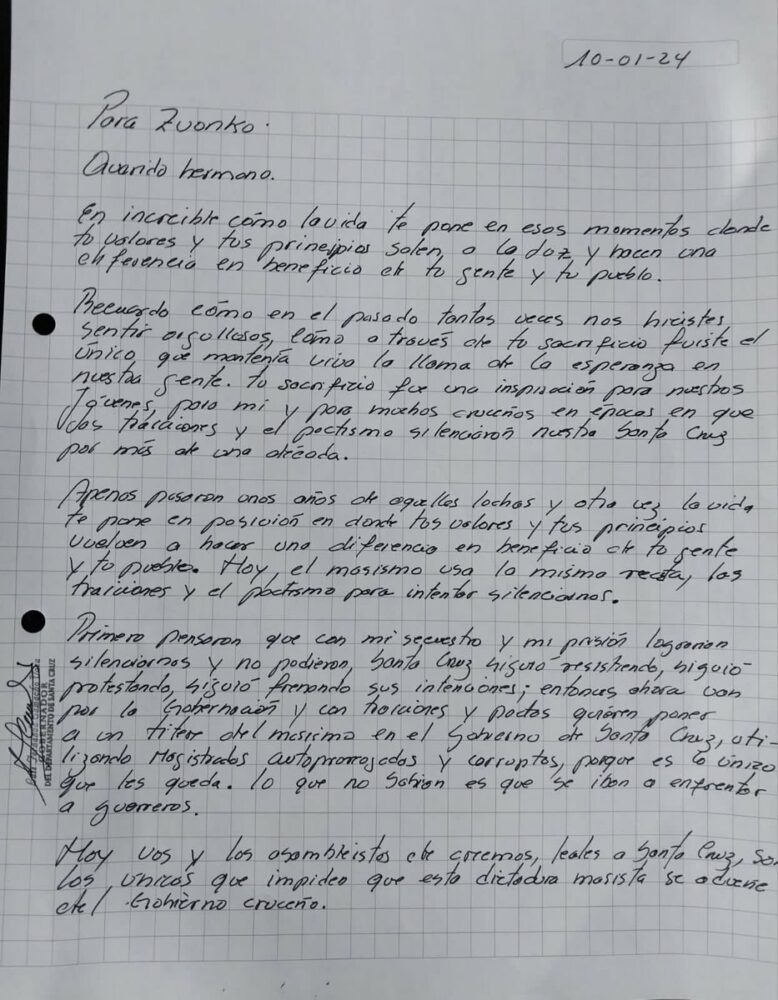 10-01-24
Para Zvonko.
Querido hermano.
En increible cómo la vida te pone en esos momentos donde
tu valores y tus principios salen, a la luz y hacen una
diferencia en beneficio de tu gente y tu pueblo.
Recuerdo cómo en el pasado tantas veces nos hicistes
sentir orgullosos, cómo a través de tu sacrificio fuiste el
único, que mantenía viva la llama de la esperanza en
nuestra gente. tu sacrificio fue una inspiración para nuestros
Jóvenes, para mi y para muchos cruceños en epocas en que
las traiciones y el pactismo silenciaron nuestra Santa Cruz
por más de una década.
Apenas pasaron unos años de aquellas luchas y otra vez la vida
te pone en posición en donde tus valores y tus principios
vuelven a hacer una diferencia en beneficio de tu gente
y tu pueblo. Hoy, el masismo usa la misma receta, las
traiciones y el pactismo para intentar silenciarnos.
Primero pensaron que con mi secuestro y mi prisión lograrían
silenciarnos y no pudieron, Santa Cruz siguió resistiendo, siguió
protestando, siguió frenando sus intenciones; entonces ahora van
por la Gobernación y con traiciones y pactos quieren poner
a un titere del masismo en el Gobierno de Santa Cruz, uti-
lizando Magistrados autoprorrogados y corruptos, porque es lo único
que les queda. lo que no sabian es que se iban a enfrentar
a guerreros.
Hoy vos y los asambleistas de creemos, leales a Santa Cruz, son
los únicos que impiden que esta dictadura masista se adueñe
del Gobierno cruceño.
GOBERNADOR
DEL DEPARTAMENTO DE SANTA CRUZ